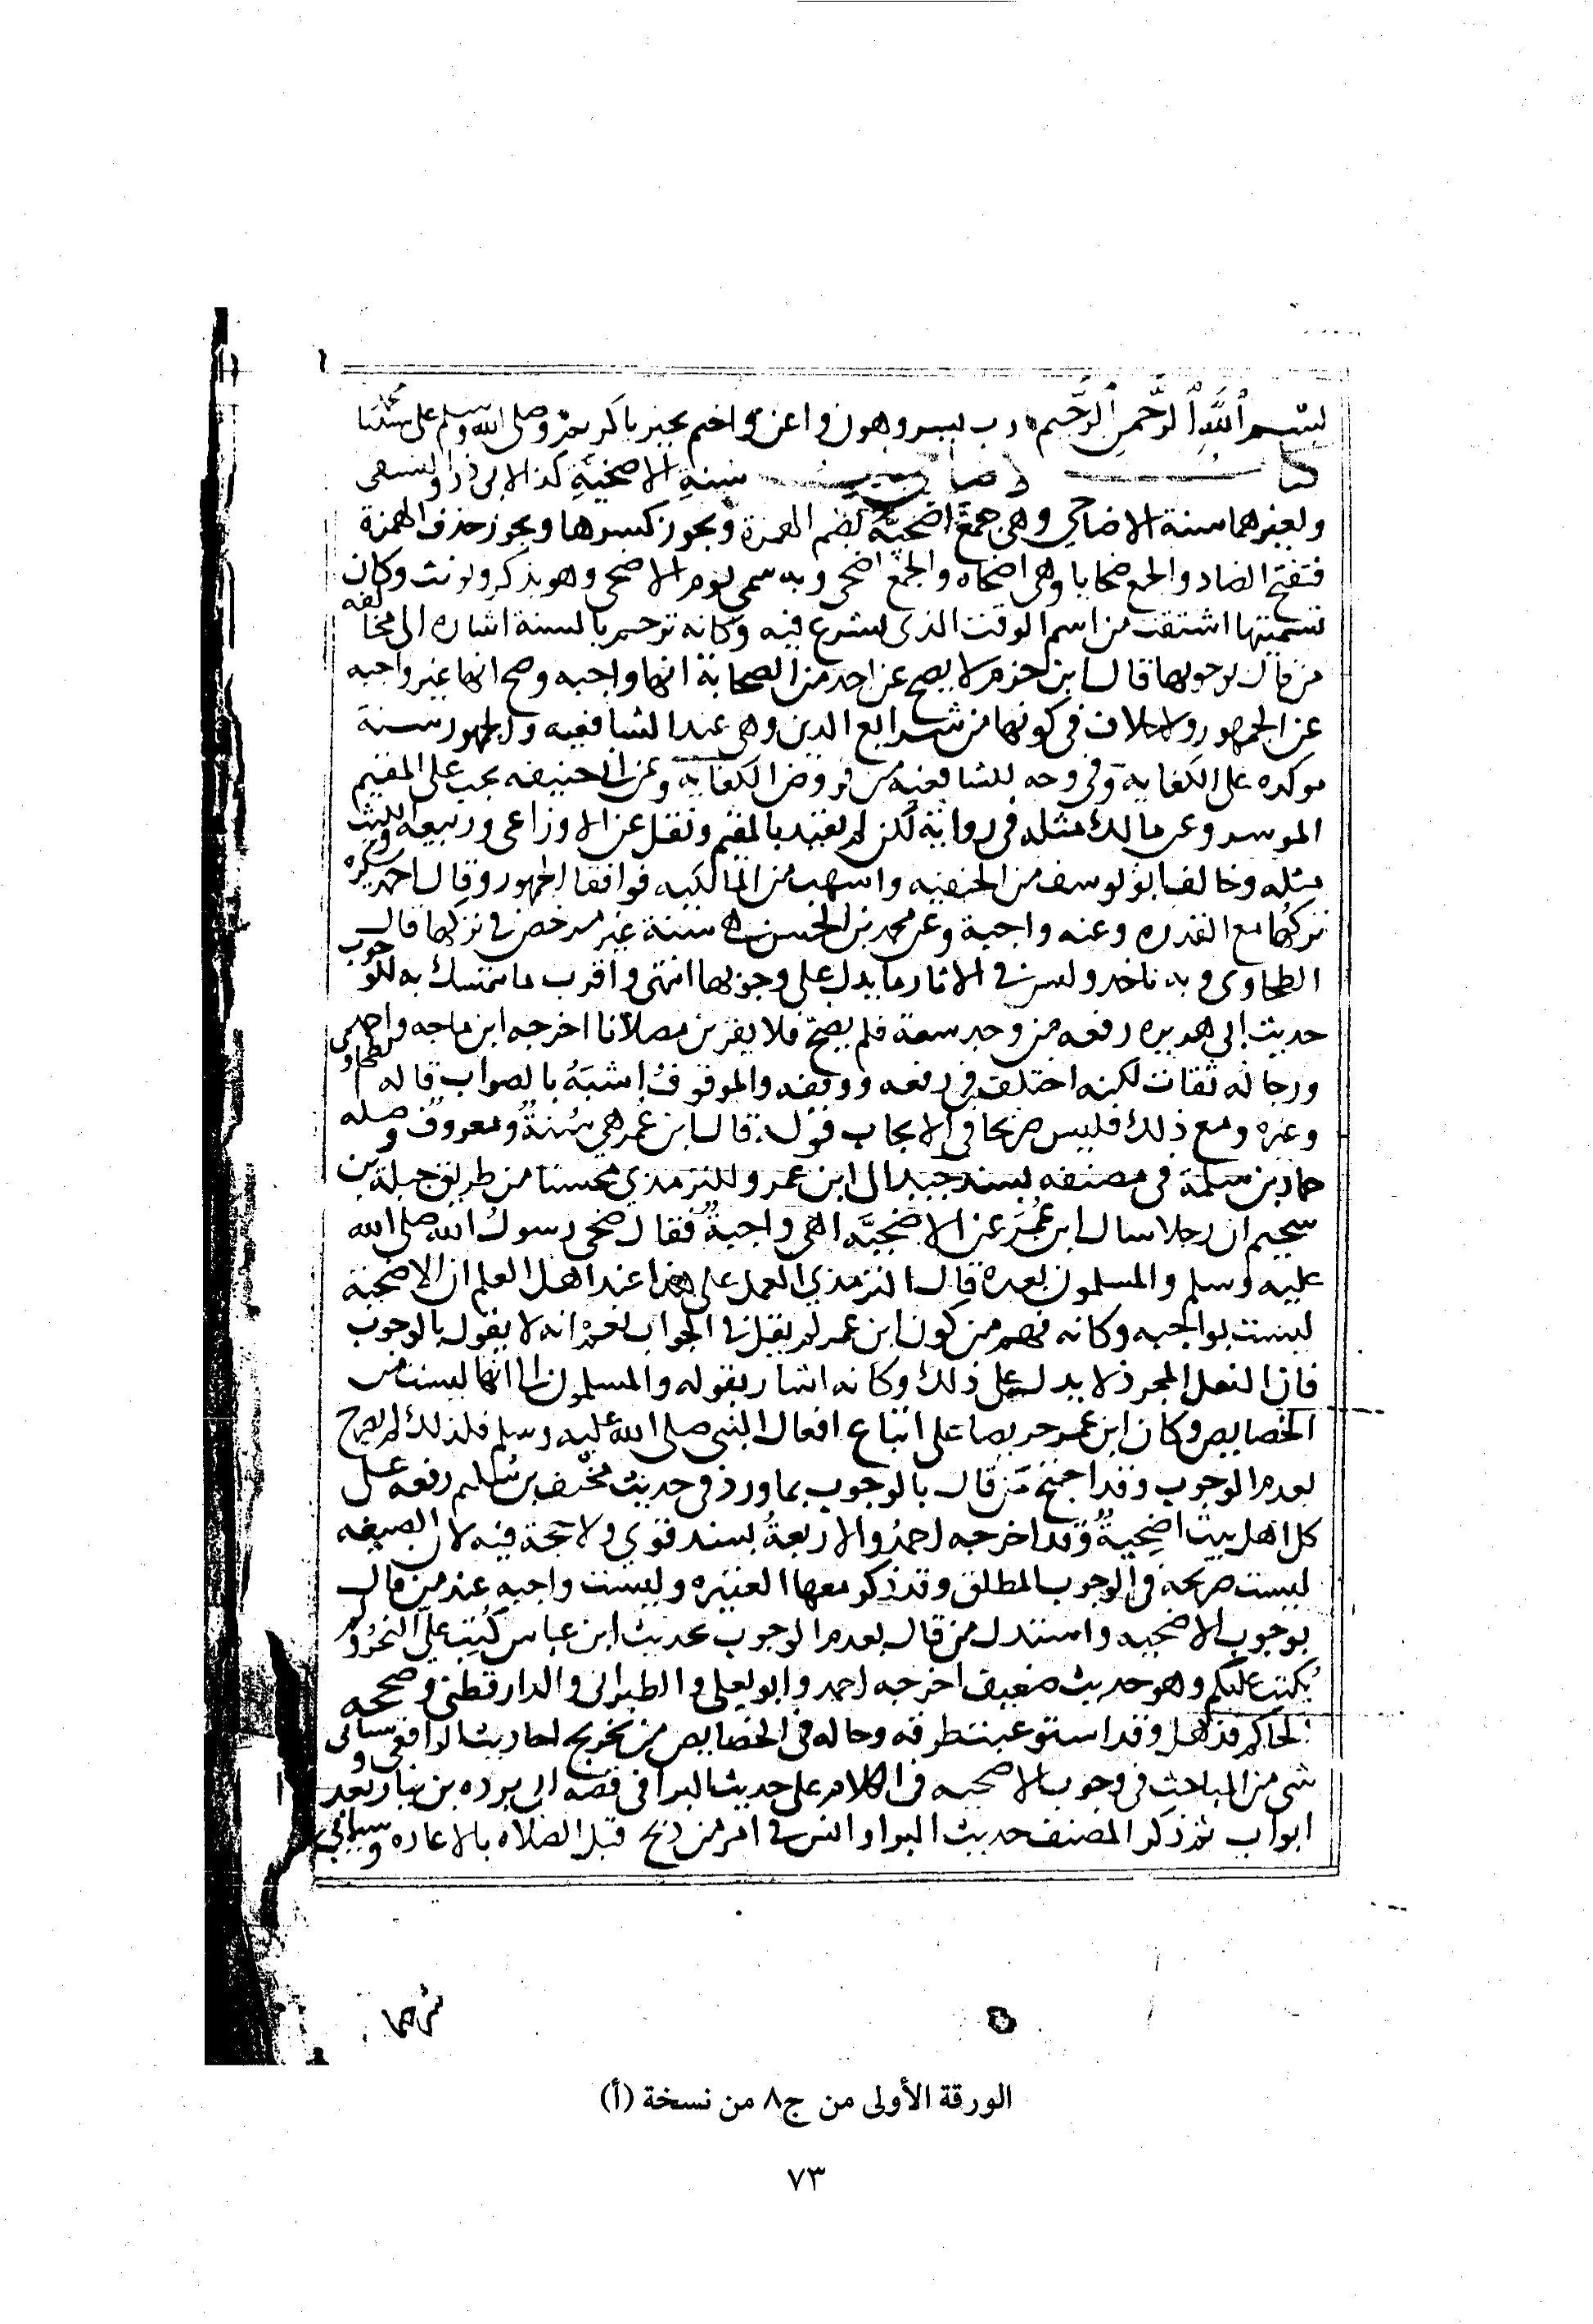 ١
بسم الله الرحمن الرحيم رب يسر وهون واعن واختم بخير يا كريم وصلى الله وسلم على سيدنا محمد
كتاب الاضاحي سنة الاضحية كذا لابي ذر والنسفي
ولغيرهما سنة الاضاحي وهي جمع اضحية بضم الهمزة ويجوز كسرها ويجوز حذف الهمزة
فتفتح الضاد والجمع ضحايا وهي اضحاه والجمع اضحى وبه سمي يوم الاضحى وهو يذكر ويونث وكان
تسميتها اشتقت من اسم الوقت الذي يشرع فيه وكانه ترجم بالسنة اشاره الى مخالفه
من قال بوجوبها قال ابن حزم لا يصح عن احد من الصحابة انها واجبه وصح انها غير واجبه
عن الجمهور ولا خلاف في كونها من شرايع الدين وهي عند الشافعيه والجمهور سنة
موكده على الكفاية وفي وجه للشافعيه من فروض الكفاية وعن ابي حنيفه يجب على المقيم
الموسر وعن مالك مثله في رواية لكن لم يقيد بالمقيم ونقل عن الاوزاعي وربيعه والليث
مثله وخالف ابو يوسف من الحنفيه واشهب من المالكيه فوافقا الجمهور وقال احمد يكره
تركها مع القدره وعنه واجبة وعن محمد بن الحسن هي سنة غير مرخص في تركها قال
الطحاوي وبه ناخذ وليس في الاثار ما يدل على وجوبها انتهى واقرب ما يتمسك به للوجوب
حديث ابي هريره رفعه من وجد سعة فلم يضح فلا يقربن مصلانا اخرجه ابن ماجه واحمد
ورجاله ثقات لكنه اختلف في رفعه ووقفه والموقوف اشبه بالصواب قاله الطحاوي
وغيره ومع ذلك فليس صريحا في الايجاب قوله قال ابن عمر هي سنة ومعروف وصله
حماد بن سلمة في مصنفه بسند جيد الى ابن عمر وللترمذي محسنا من طريق جبلة بن
سحيم ان رجلا سال ابن عمر عن الاضحية اهي واجبة فقال ضحى رسول الله صلى الله
عليه وسلم والمسلمون بعده قال الترمذي العمل على هذا عند اهل العلم ان الاضحية
ليست بواجبه وكانه فهم من كون ابن عمر لم يقل في الجواب نعم انه لا يقول بالوجوب
فان الفعل المجرد لا يدل على ذلك وكانه اشار بقوله والمسلمون الى انها ليست من
الخصايص وكان ابن عمر حريصا على اتباع افعال النبي صلى الله عليه وسلم فلذلك لم يصرح
بعدم الوجوب وقد احتج من قال بالوجوب بما ورد في حديث مخنف بن سليم رفعه على
كل اهل بيت اضحية وقد اخرجه احمد والاربعة بسند قوي ولا حجة فيه لان الصيغه
ليست صريحه في الوجوب المطلق وقد ذكر معها العتيره وليست واجبه عند من قال
بوجوب الاضحيه واستدل من قال بعدم الوجوب بحديث ابن عباس كتب علي النحر ولم
يكتب عليكم وهو حديث ضعيف اخرجه احمد وابو يعلى والطبراني والدارقطني وصححه
الحاكم فذهل وقد استوعبت طرقه ورجاله في الخصايص من تخريج احاديث الرافعي وسياتي
شي من المباحث في وجوب الاضحيه في الكلام على حديث البرا في قصه ابي برده بن نيار بعد
ابواب ثم ذكر المصنف حديث البرا وانس في امر من ذبح قبل الصلاه بالاعاده وسياتي
شرحهما
الورقة الأولى من ج٨ من نسخة (أ)
٧٣